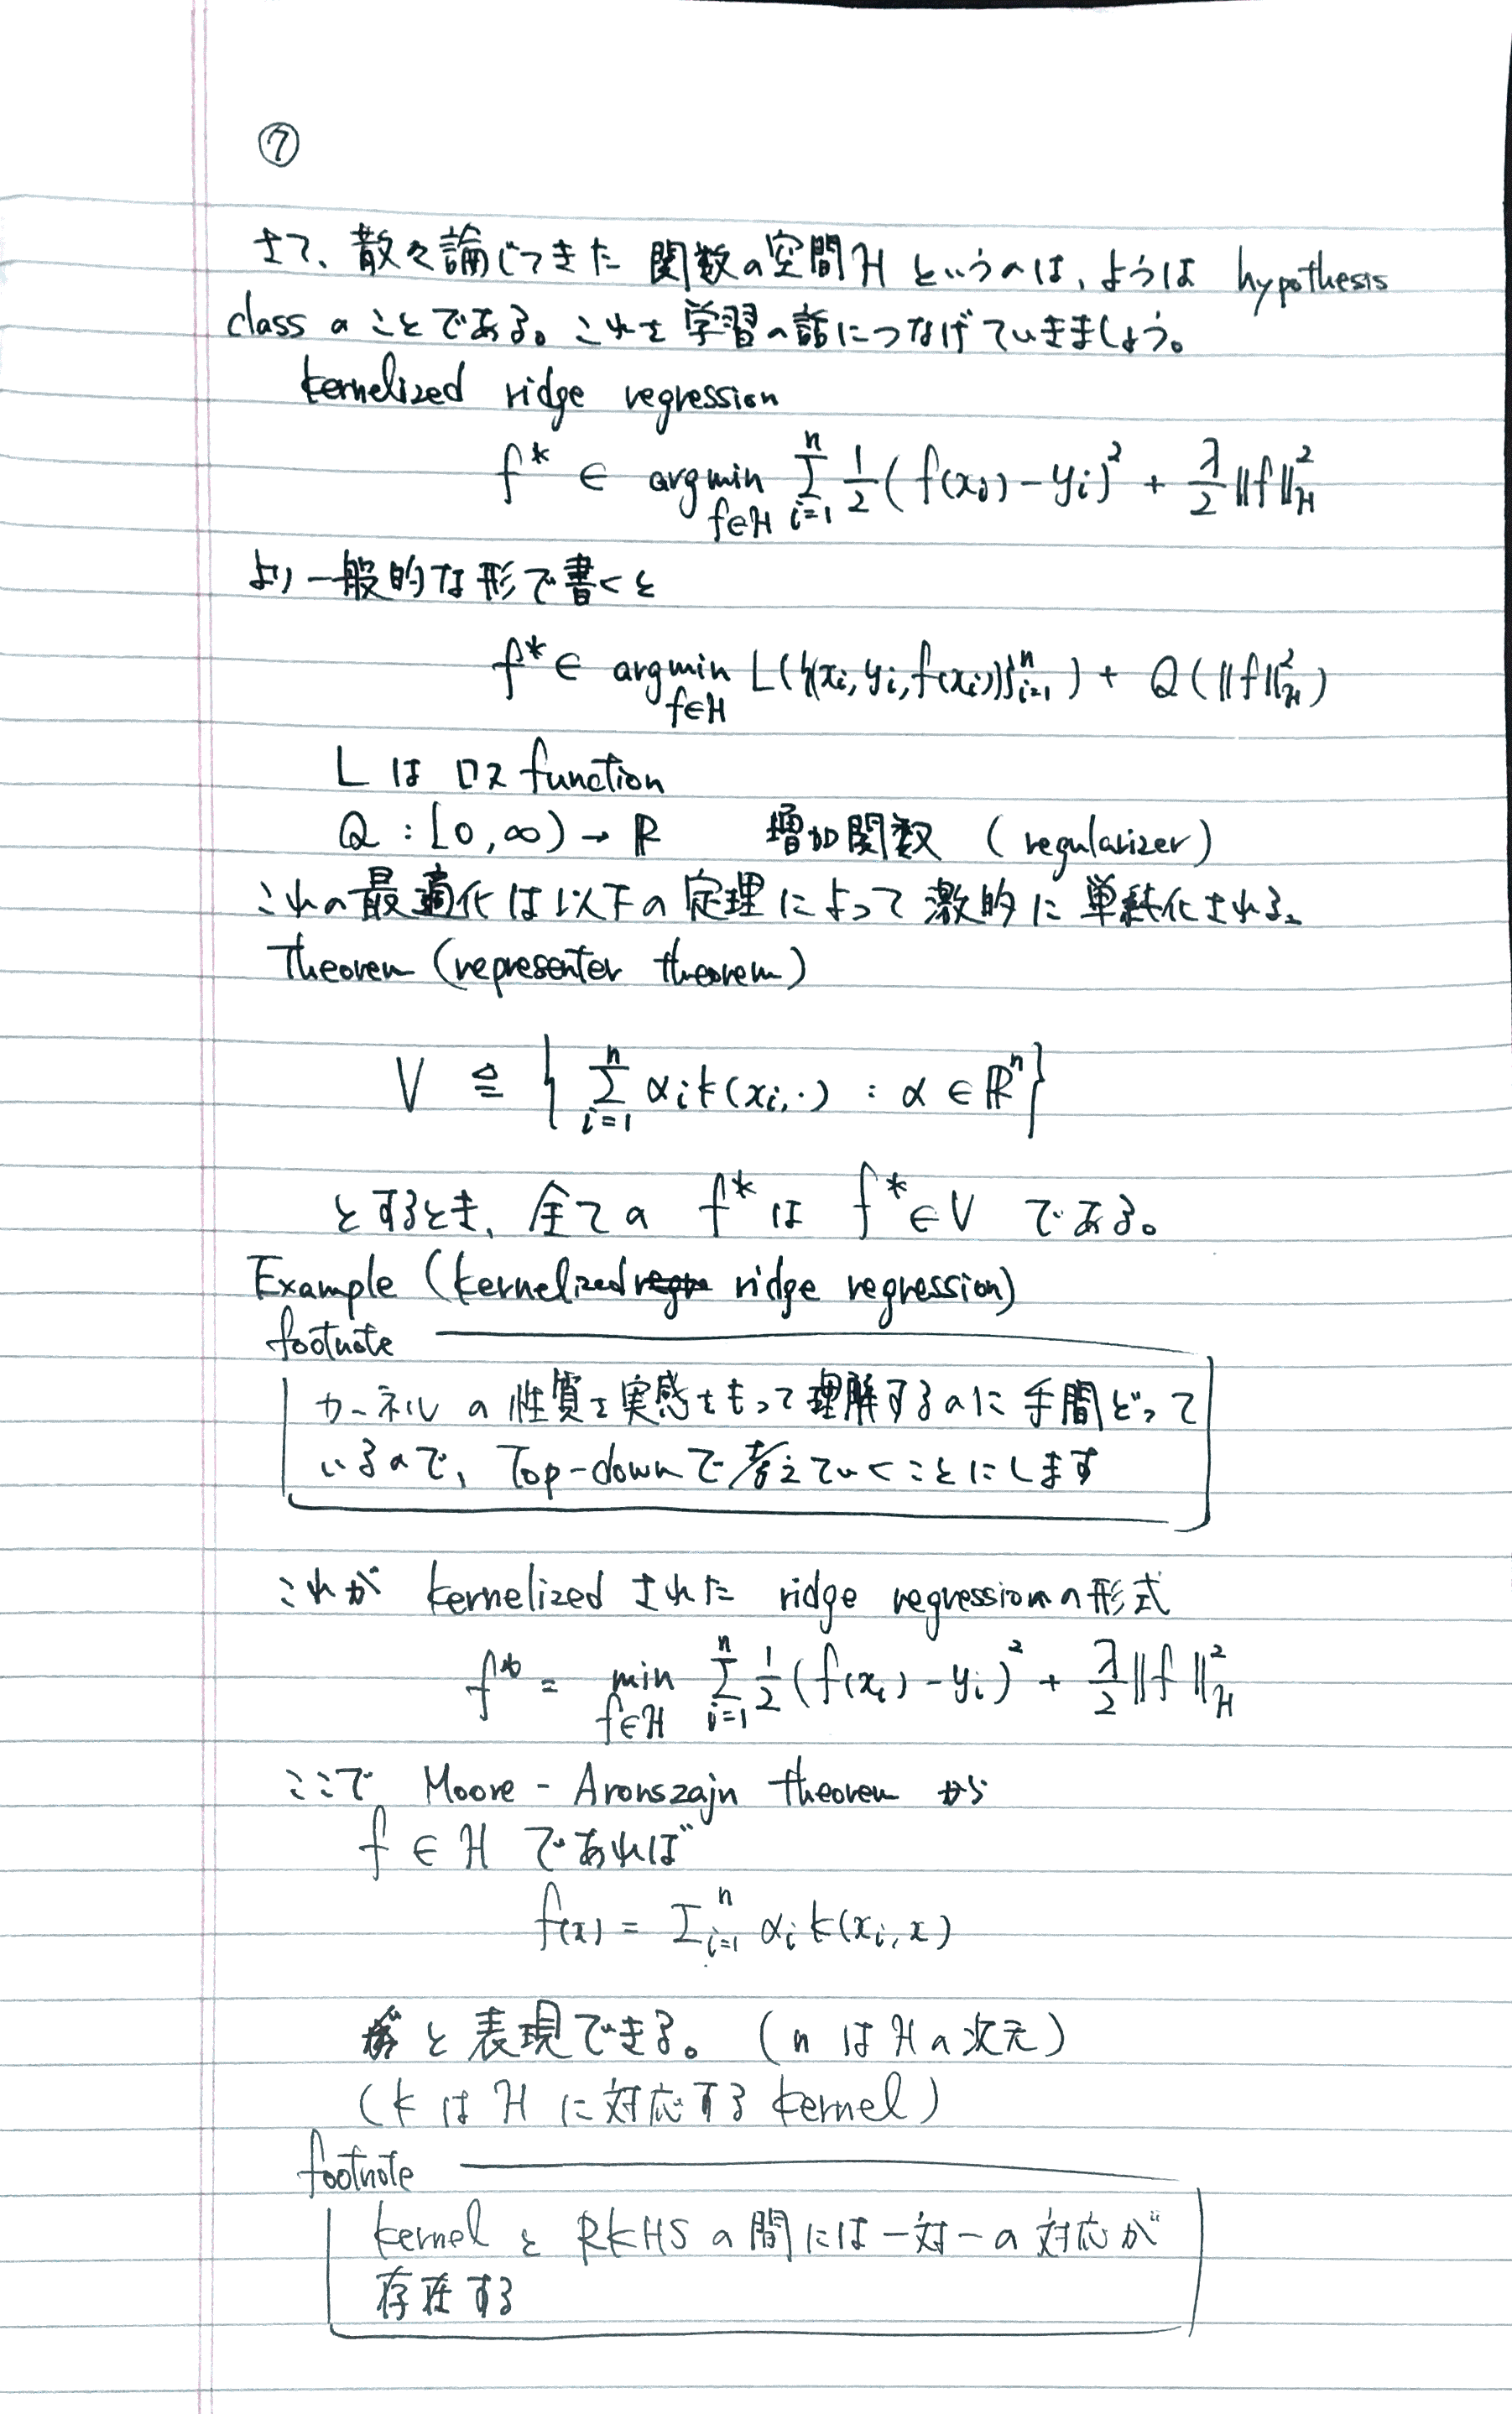 ⑦
さて、散々論じてきた 関数の空間 H というのは、ようは hypothesis
class のことである。これを学習の話につなげていきましょう。
kernelized ridge regression
f* ∈ argmin_{f∈H} Σ_{i=1}^{n} 1/2 (f(x_i) - y_i)^2 + λ/2 ||f||_H^2
より一般的な形で書くと
f* ∈ argmin_{f∈H} L({(x_i, y_i, f(x_i))}_{i=1}^{n}) + Q(||f||_H^2)
L は ロス function
Q : [0, ∞) → ℝ 増加関数 (regularizer)
これの最適化は以下の定理によって激的に単純化される。
Theorem (representer theorem)
V ≜ { Σ_{i=1}^{n} α_i k(x_i, ·) : α ∈ ℝ^n }
とするとき、全ての f* は f* ∈ V である。
Example (kernelized ridge regression)
footnote
カーネルの性質を実感をもって理解するのに手間どって
いるので、Top-downで考えていくことにします
これが kernelized された ridge regressionの形式
f* = min_{f∈H} Σ_{i=1}^{n} 1/2 (f(x_i) - y_i)^2 + λ/2 ||f||_H^2
ここで Moore - Aronszajn theorem から
f ∈ H であれば
f(x) = Σ_{i=1}^{n} α_i k(x_i, x)
と表現できる。(n は H の次元)
(k は H に対応する kernel)
footnote
kernel と RKHS の間には一対一の対応が
存在する